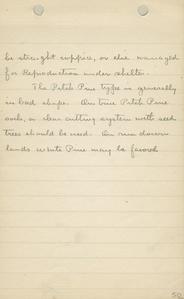 be straight coppice, or else managed
for Reproduction under shelter.
The Pitch Pine type is generally
in bad shape. On true Pitch Pine
soils, a clear cutting system with seed
trees should be used. On run down
lands White Pine may be favored
50